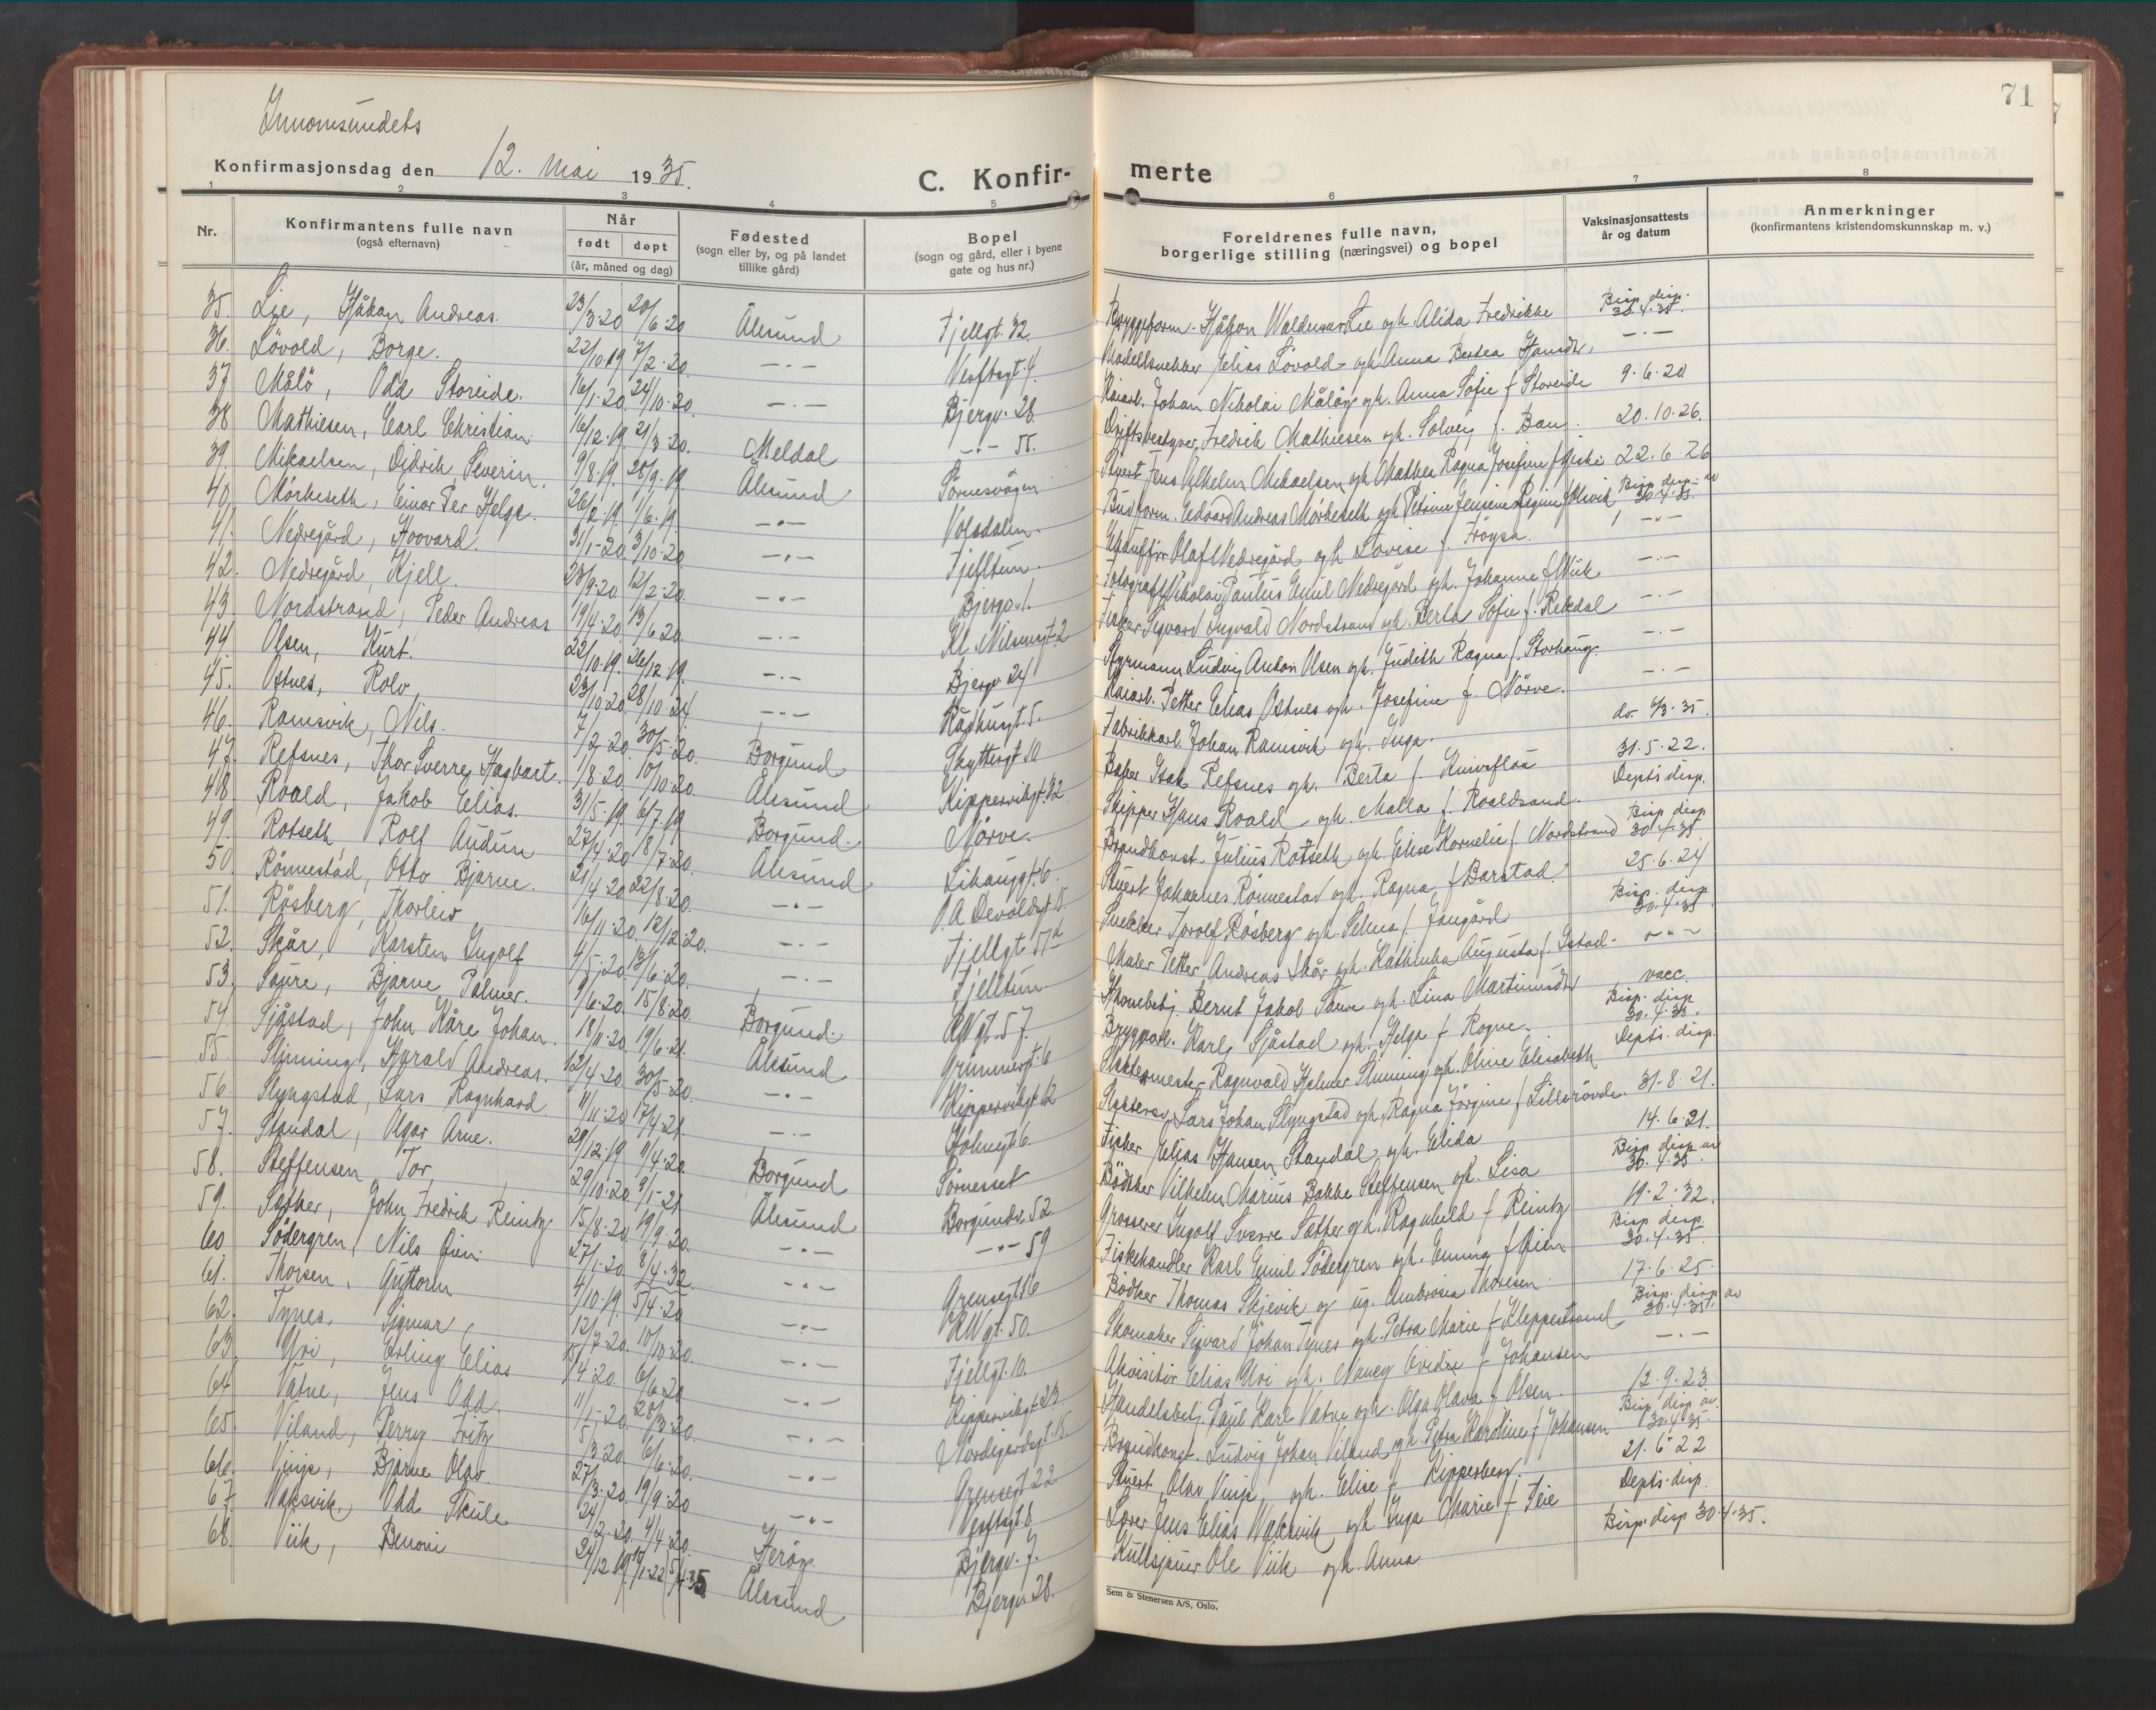 Innomsundets
Konfirmasjonsdag den 12. mai 1935.
C. Konfir-
merte
71
1 2 3 4 5 6 7 8
Nr.
Konfirmantens fulle navn
(også efternavn)
Når
født døpt
(år, måned og dag)
Fødested
(sogn eller by, og på landet
tillike gård)
Bopel
(sogn og gård, eller i byene
gate og hus nr.)
Foreldrenes fulle navn,
borgerlige stilling (næringsvei) og bopel
Vaksinasjonsattests
år og datum
Anmerkninger
(konfirmantens kristendomskunnskap m. v.)
35. Lie, Håkon Andreas. 23/3-20 20/6-20 Ålesund Fjellgt. 32. Bryggeform. Håkon Waldemar Lie og h. Alida Fredrikke Bisp. disp. 30.4.35.
36. Løvold, Borge. 22/10-19 7/2-20. -"- Verftsgt. 4. Modellsnekker Elias Løvold og h. Anna Bertea Hansdtr. -"-
37 Målö, Odd Storeide. 16/1-20. 24/10-20. -"- Bjergv. 28. Kaiarb. Johan Nikolai Målöy og h. Anna Sofie f. Storeide 9.6.20
38 Mathiesen, Carl Christian. 16/12-19. 21/3-20. Meldal -"- 55. Driftsbestyrer Fredrik Mathiesen og h. Solveig f. Bang. 20.10.26.
39. Mikaelsen, Didrik Severin. 9/8-19. 28/9-19. Ålesund Sörnesvågen Stuert Jens Vilhelm Mikaelsen og h. Mathea Ragna Josefine f. Giske 22.6.26
40. Mörkeseth, Einar Per Helge. 26/2-19. 1/6-19 -"- Volsdalen. Budform. Edvard Andreas Mörkeseth og h. Petrine Jensine Regine f. Ulsvik Bisp. disp. av 30.4.35.
41. Nedregård, Hoovard. 31/1-20. 3/10-20. -"- Fjelltun. Chaufför Olaf Nedregård og h. Lovise f. Fröysa. -"-
42. Nedregård, Kjell. 23/9-20 12/2-20. -"- Bjergv. 1. Fotograf Nikolai Paulus Emil Nedregård og h. Johanne f. Wiik -"-
43. Nordstrand, Peder Andreas 19/4-20 13/6-20 -"- Kl. Nilsensgt. 2 Fisker Sigvard Ingvald Nordstrand og h. Berta Sofie f. Rekdal -"-
44. Olsen, Kurt. 22/10-19. 26/12-19. -"- Bjergv. 24 Styrmann Ludvig Anton Olsen og h. Judith Ragna f. Storhaug. -"-
45. Ostnes, Rolv, 23/10-20. 28/10-24 -"- Rådhusgt. 5. Kaiarb. Petter Elias Ostnes og h. Josefine f. Nörve. -"-
46. Ramsvik, Nils. 7/2-20. 30/5-20. Borgund Skyttergt. 10 Fabrikkarb. Johan Ramsvik og h. Inga. do. 6/3-35.
47. Refsnes, Thor Sverre Hagbart. 1/8-20. 10/10-20. Ålesund Kipperviksgt. 32. Baker Isak Refsnes og h. Berta f. Knivsflåa 31.5.22.
48. Roald, Jakob Elias. 31/5-19. 6/7-19 Borgund. Nörve. Skipper Hans Roald og h. Malla f. Roaldsand. Dept's disp.
49. Rotseth, Rolf Audun 27/4-20 18/7-20. Ålesund Lihauggt. 6. Brandkonst. Julius Rotseth og h. Elise Kornelie f. Nordstrand Bisp. disp. 30.4.35.
50. Rönnestad, Otto Bjarne. 21/4-20 22/8-20. -"- O. A. Devoldsgt. 15. Stuert Johannes Rönnestad og h. Ragna f. Barstad. 25.6.24
51. Rösberg, Thorleiv 16/11-20. 12/12-20. -"- Fjellgt. 51 Snekker Torolf Rösberg og h. Selma f. Jangård Bisp. disp 30.4.35
52. Skår, Karsten Ingolf 4/5-20 13/6-20. -"- Fjelltun Maler Petter Andreas Skår og h. Kathinka Augusta f. Ystad. -"-
53. Saure, Bjarne Palmer. 9/6-20. 15/8-20. Borgund. RWgt. 57. Handelsbetj. Bernt Jakob Saure og h. Lina Martinusdtr vacc.
54. Sjåstad, John Kåre Johan. 18/11-20. 19/6-21. Ålesund Grimmergt. 6 Bryggearb. Karl Sjåstad og h. Helga f. Rogne. Bisp. disp 30.4.35.
55. Slinning, Harald Andreas. 12/4-20 30/5-20. -"- Kipperviksgt. 12 Slaktermester Ragnvald Hjelmer Slinning og h. Oline Elisabeth Dept's. disp.
56. Slyngstad, Lars Ragnhard. 11/11-20 17/4-21. -"- Holmegt. 6 Slaktersv. Lars Johan Slyngstad og h. Ragna Jörgine f. Lillerövde. 31-8.21.
57. Standal, Olgar Arne. 29/12-19 11/4-20. Borgund Sörneset Fisker Elias Hansen Standal og h. Elida 14.6.21.
58. Steffensen, Tor, 29/10-20 9/1-21 Ålesund Borgundv. 52. Bödker Vilhelm Marius Bakke Steffensen og h. Lisa Bisp. disp. av 30.4.35.
59. Sæther, John Fredrik Reintz 15/8-20. 19/9-20. -"- -"- 59 Grosserer Ingolf Sverre Sæther og h. Ragnhild f. Reintz 19.2.32.
60 Södergren, Nils Öien. 27/1-20 8/4-32. -"- Grensegt. 56 Fiskehandler Karl Emil Södergren og h. Emma f. Öien Bisp. disp. 30.4.35.
61. Thorsen, Guttorm 4/10-19. 5/4-20 -"- RWgt. 50. Bödker Thomas Skjevik og ug. Ambrosia Thoresen. 17.6.25.
62. Tynes, Sigmar, 12/7-20. 10/10-20. -"- Fjellgt. 10. Skomaker Sigvard Johan Tynes og h. Petra Marie f. Kleppestrand Bisp. disp av 30.4.35.
63. Uri, Erling Elias 15/4-20. 6/6-20 -"- Kipperviksgt. 23. Akvisitör Elias Uri og h. Nancy Ovidie f. Johansen -"-
64 Vatne, Jens Odd. 11/1-20. 28/3-20. -"- Nordigardsgt. 15. Handelsbetj. Paul Karl Vatne og h. Olga Olava f. Olsen. 12.9.23.
65. Viland, Perry Fritz 5/3-20 6/6-20. -"- Grensegt. 22 Brandkonst. Ludvig Johan Viland og h. Petra Karoline f. Johansen Bisp. disp. av. 30.4.35.
66. Vinje, Bjarne Olav. 27/3-20. 19/9-20 -"- Verftsgt. 6 Stuert Olav Vinje og h. Elise f. Kipperberg. 21.6.22
67. Vaksvik, Odd Skule 24/2-20. 4/4-20. Heröy. Bjergv. 7. Lærer Jens Elias Vaksvik og h. Inga Marie f. Teie Dept's. disp.
68. Viik, Benoni 24/12-19. 15/1-22 5/4-35 Ålesund Bjergv. 28. Kullsjauer Ole Viik og h. Anna Bisp. disp 30.4.35.
Sem & Stenersen A/S, Oslo.